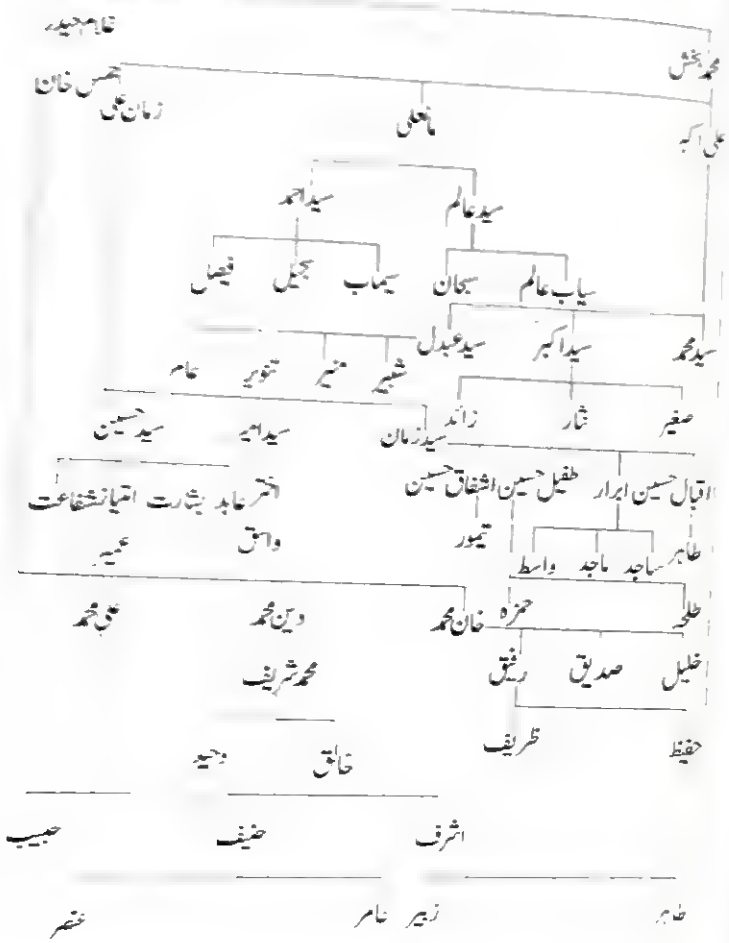 غلام حیدر
محمد بخش
شمس خان
زمان علی
مانعلی
علی اکبر
سید عالم سید احمد
سیاب عالم سبحان سیماب بجیل فیصل
سید محمد سید اکبر سید عبدل
شبیر منیر تنویر عامر
صغیر نثار زائد
سید زمان سید امیر سید حسین
اقبال حسین ابرار طفیل حسین اشفاق حسین
اختر عابد بشارت امتیاز شفاعت
طاہر ساجد ماجد واسط تیمور واثق عمیر
طلحہ حمزہ خان محمد دین محمد علی محمد
خلیل صدیق رفیق محمد شریف
حفیظ ظریف خالق وحید
اشرف حنیف حبیب
طاہر زبیر عامر عنصر